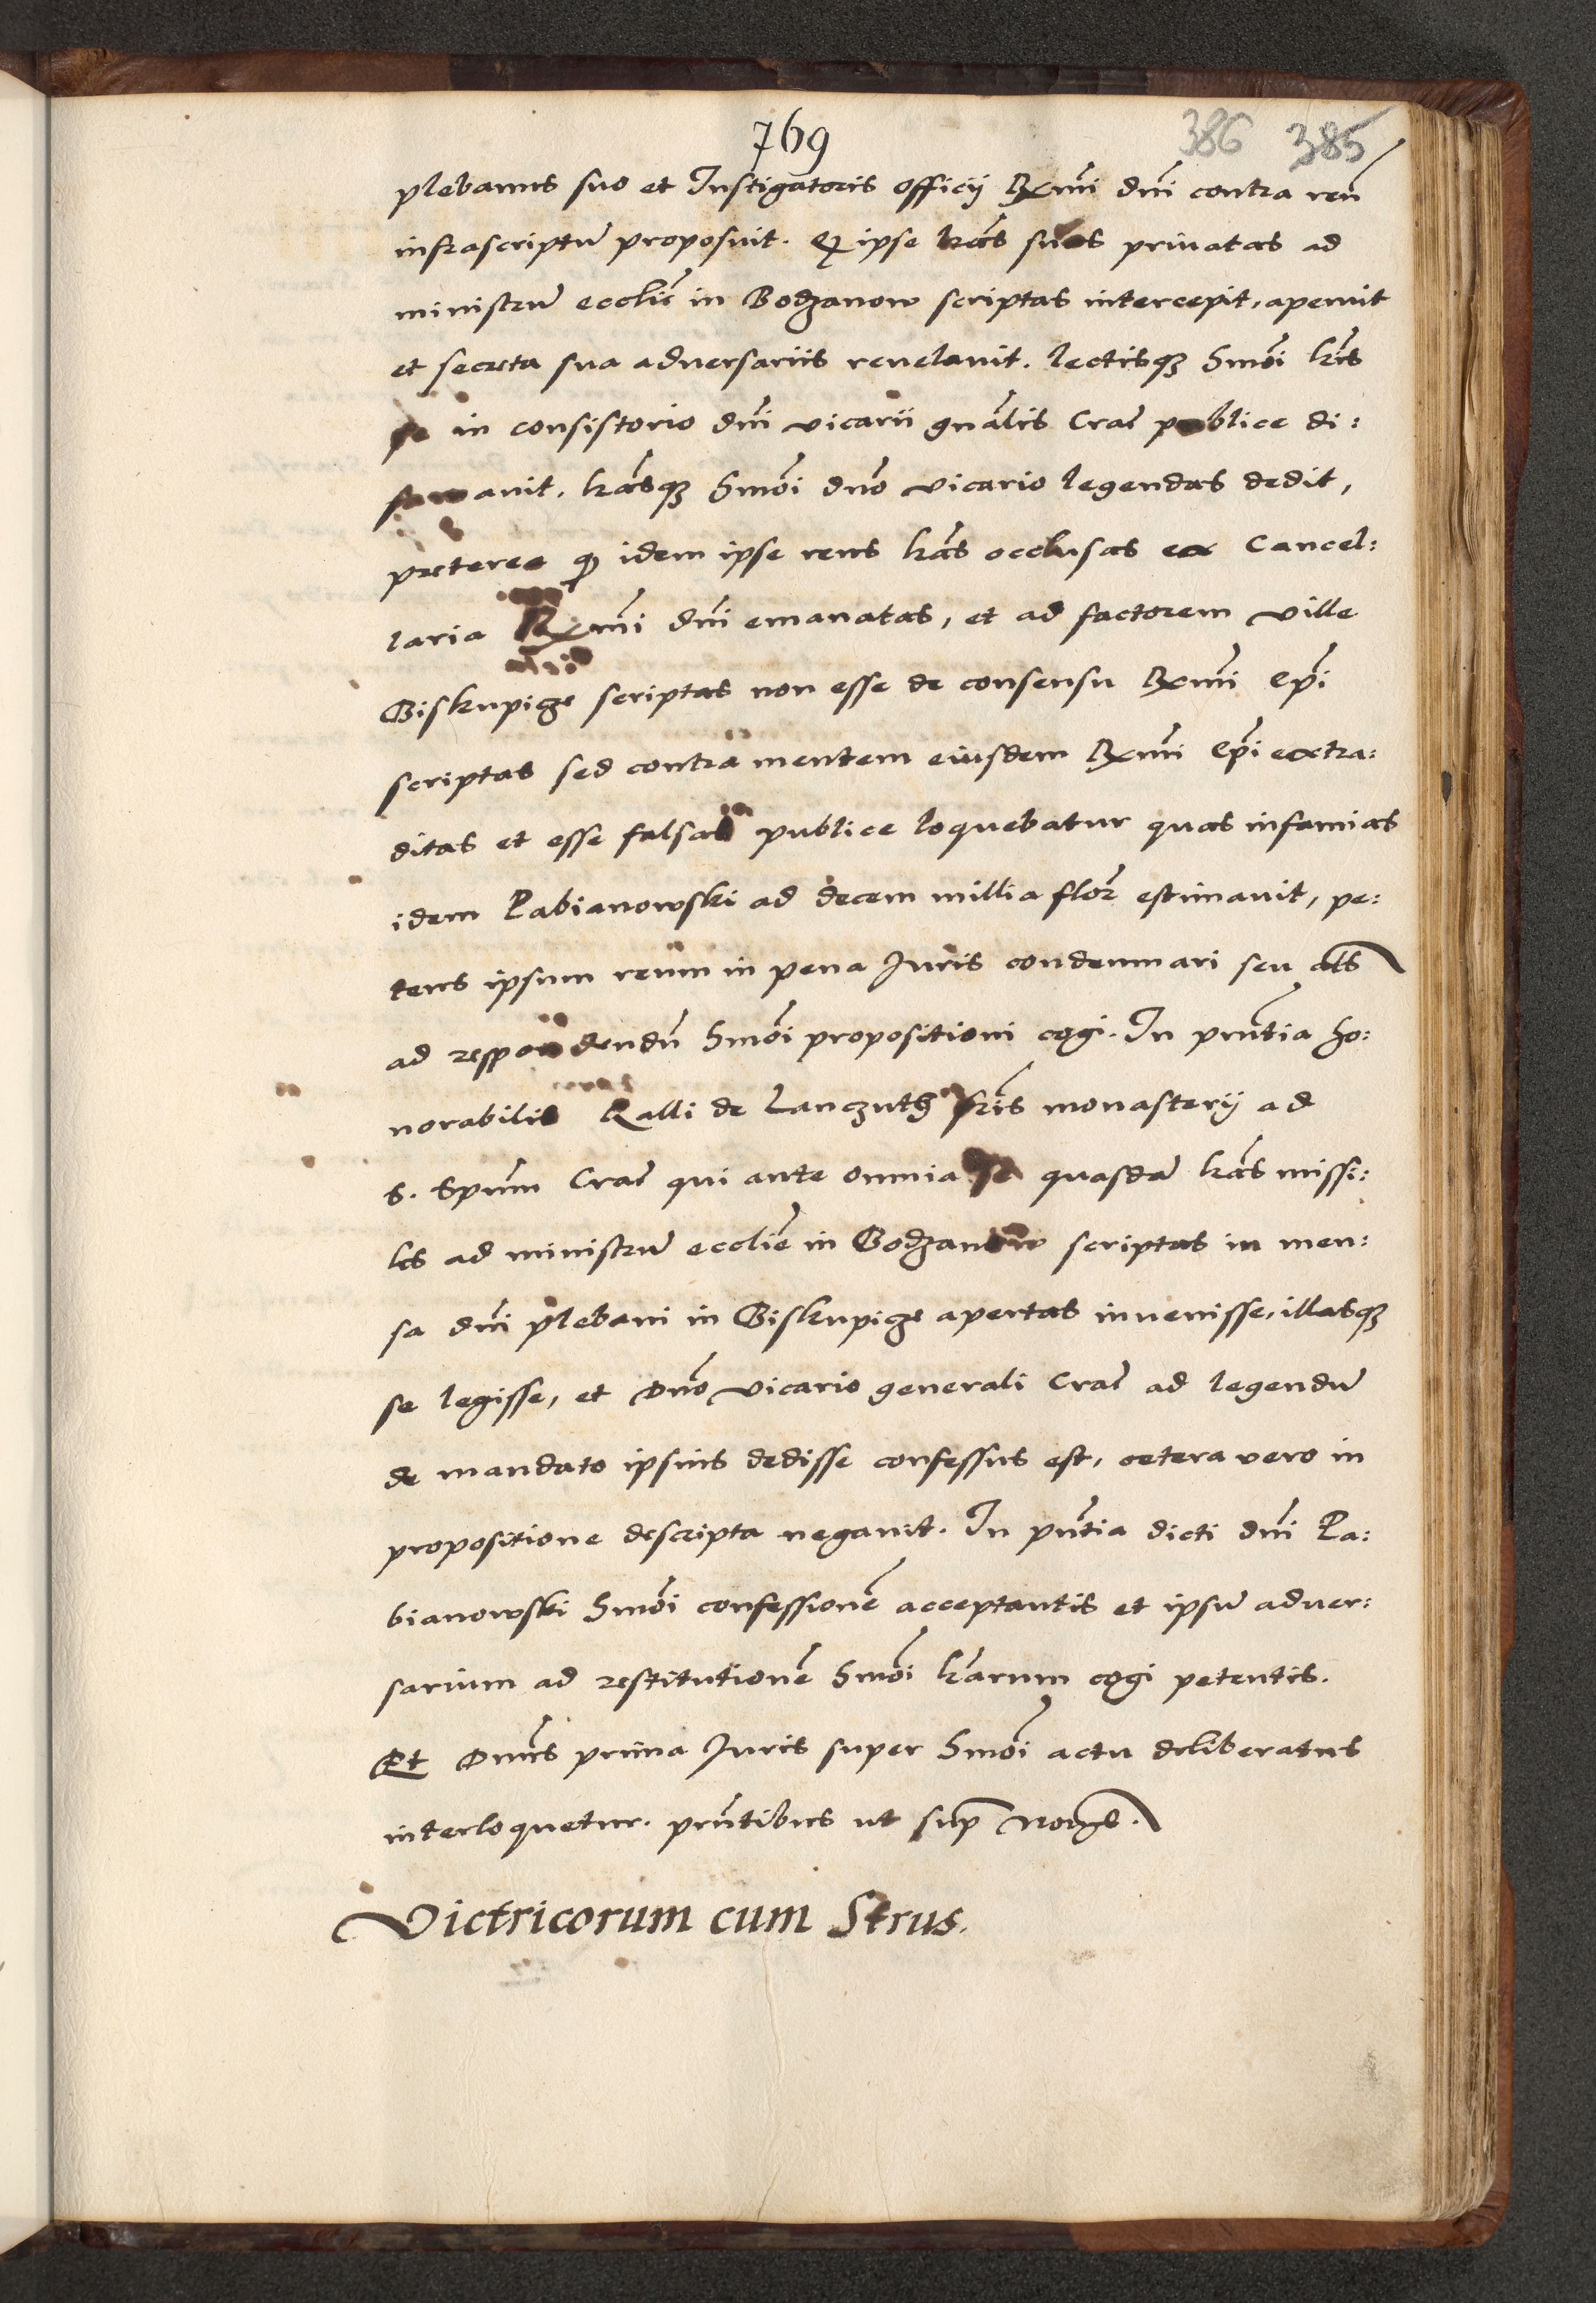 769
386 385
plebanus suo et Instigatoris officij Rxmi dni contra reu
infrascriptu proposuit. Q ipse lras suas priuatas ad
ministru ecclie in Bodzanow scriptas intercepit, aperuit
et secreta sua adversariis reuelauit. lectisq hmoi lris
se in consistorio dni vicarii gnalis Crac publice di:
famauit. lrasq hmoi dno vicario legendas dedit,
preterea q idem ipse reus lras occlusas ex Cancel:
laria Rxmi dni emanatas, et ad factorem ville
Biskupicze scriptas non esse de consensu Rxmi epi
scriptas sed contra mentem eiusdem Rxmi epi extra:
ditas et esse falsas publice loquebatur quas infamias
idem Pabianowski ad decem millia flor estimauit, pe:
tens ipsum reum in pena Juris condemnari seu als
ad respondendu hmoi propositioni cogi. In pntia ho:
norabilis Galli de Lanczuth fris monasterij ad
S. Spum Crac qui ante omnia se quasda lras missi:
les ad ministru ecclie in Bodzanow scriptas in men:
sa dni plebani in Biskupicze apertas inuenisse, illasq
se legisse, et dno vicario generali Crac ad legendu
de mandato ipsius dedisse confessus est, cetera vero in
propositione descripta negauit. In pntia dicti dni Pa:
bianowski hmoi confessione acceptantis et ipsu aduer:
sarium ad restitutione hmoi lrarum cogi petentis.
Et Dnus prima Juris super hmoi actu deliberatus
interloquetur. pntibus ut sup
Victricorum cum Strus.